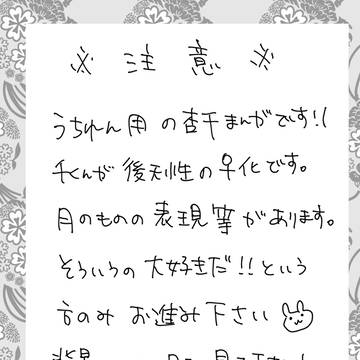 ※ 注 意 ※
うちれん用 の 杏千まんがです!!
千くんが 後天性の ♀化です。
月のものの 表現等 があります。
そういうの 大好きだ!! という
方のみ お進み下さい